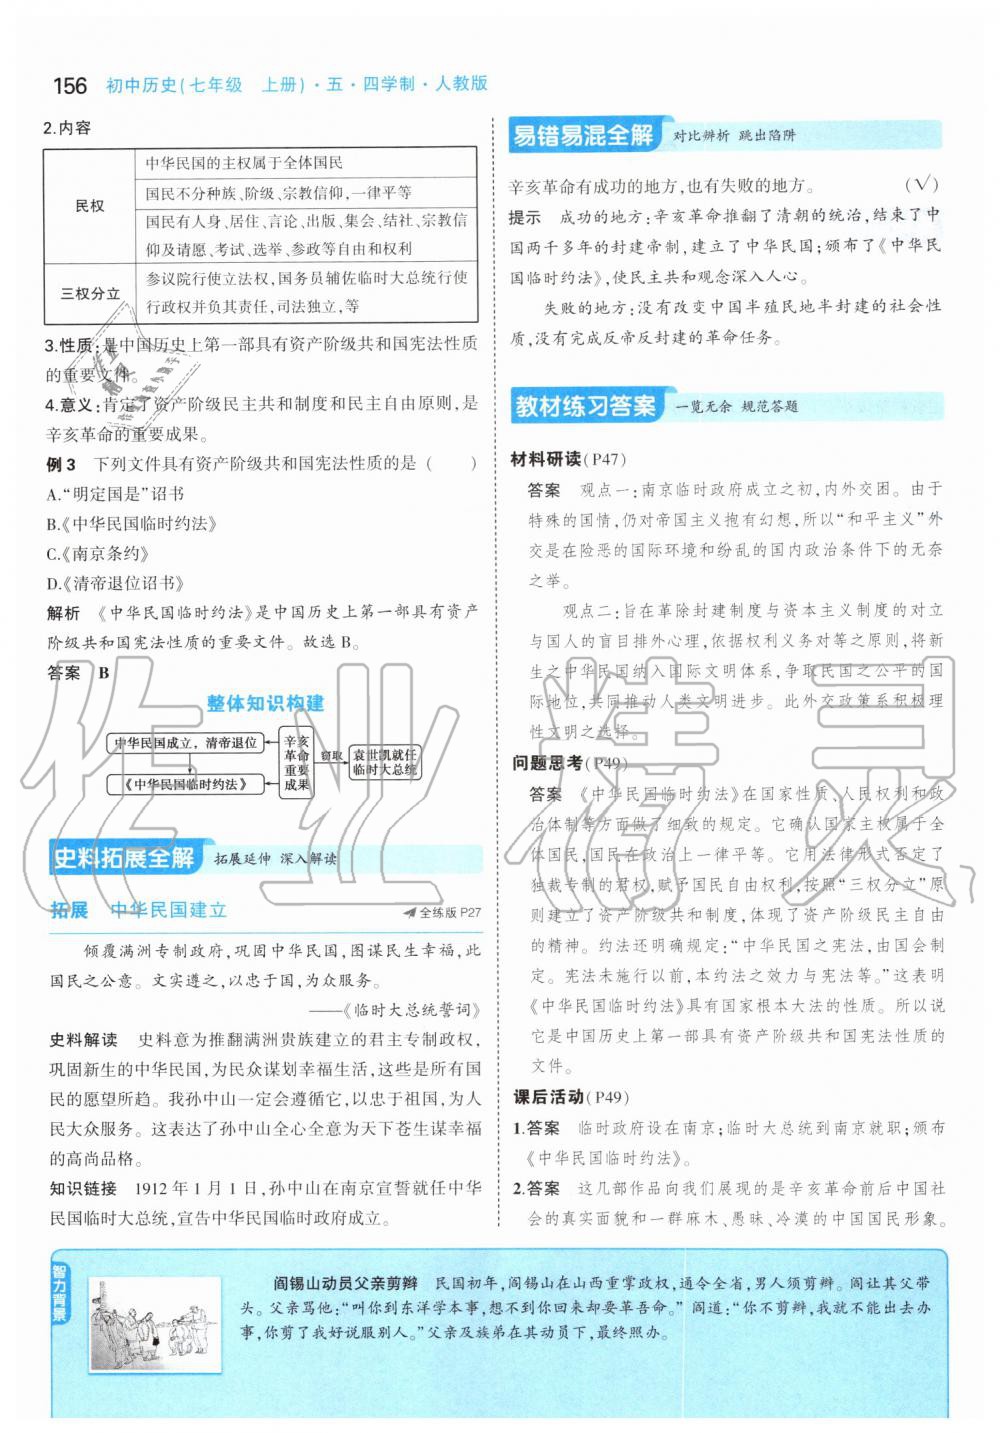 156 初中历史(七年级 上册)·五·四学制·人教版
2.内容
民权
中华民国的主权属于全体国民
国民不分种族、阶级、宗教信仰,一律平等
国民有人身、居住、言论、出版、集会、结社、宗教信
仰及请愿、考试、选举、参政等自由和权利
三权分立
参议院行使立法权,国务员辅佐临时大总统行使
行政权并负其责任,司法独立,等
3.性质:是中国历史上第一部具有资产阶级共和国宪法性质
的重要文件。
4.意义:肯定了资产阶级民主共和制度和民主自由原则,是
辛亥革命的重要成果。
例3 下列文件具有资产阶级共和国宪法性质的是 ( )
A.“明定国是”诏书
B.《中华民国临时约法》
C.《南京条约》
D.《清帝退位诏书》
解析 《中华民国临时约法》是中国历史上第一部具有资产
阶级共和国宪法性质的重要文件。故选 B。
答案 B
整体知识构建
中华民国成立,清帝退位
《中华民国临时约法》
辛亥
革命
重要
成果
窃取
袁世凯就任
临时大总统
史料拓展全解 拓展延伸 深入解读
拓展 中华民国建立 全练版 P27
倾覆满洲专制政府,巩固中华民国,图谋民生幸福,此
国民之公意。文实遵之,以忠于国,为众服务。
——《临时大总统誓词》
史料解读 史料意为推翻满洲贵族建立的君主专制政权,
巩固新生的中华民国,为民众谋划幸福生活,这是所有国
民的愿望所趋。我孙中山一定会遵循它,以忠于祖国,为人
民大众服务。这表达了孙中山全心全意为天下苍生谋幸福
的高尚品格。
知识链接 1912 年 1 月 1 日,孙中山在南京宣誓就任中华
民国临时大总统,宣告中华民国临时政府成立。
易错易混全解 对比辨析 跳出陷阱
辛亥革命有成功的地方,也有失败的地方。 (√)
提示 成功的地方:辛亥革命推翻了清朝的统治,结束了中
国两千多年的封建帝制,建立了中华民国;颁布了《中华民
国临时约法》,使民主共和观念深入人心。
失败的地方:没有改变中国半殖民地半封建的社会性
质,没有完成反帝反封建的革命任务。
教材练习答案 一览无余 规范答题
材料研读(P47)
答案 观点一:南京临时政府成立之初,内外交困。由于
特殊的国情,仍对帝国主义抱有幻想,所以“和平主义”外
交是在险恶的国际环境和纷乱的国内政治条件下的无奈
之举。
观点二:旨在革除封建制度与资本主义制度的对立
与国人的盲目排外心理,依据权利义务对等之原则,将新
生之中华民国纳入国际文明体系,争取民国之公平的国
际地位,共同推动人类文明进步。此外交政策系积极理
性文明之选择。
问题思考(P49)
答案 《中华民国临时约法》在国家性质、人民权利和政
治体制等方面做了细致的规定。它确认国家主权属于全
体国民,国民在政治上一律平等。它用法律形式否定了
独裁专制的君权,赋予国民自由权利,按照“三权分立”原
则建立了资产阶级共和制度,体现了资产阶级民主自由
的精神。约法还明确规定:“中华民国之宪法,由国会制
定。宪法未施行以前,本约法之效力与宪法等。”这表明
《中华民国临时约法》具有国家根本大法的性质。所以说
它是中国历史上第一部具有资产阶级共和国宪法性质的
文件。
课后活动(P49)
1.答案 临时政府设在南京;临时大总统到南京就职;颁布
《中华民国临时约法》。
2.答案 这几部作品向我们展现的是辛亥革命前后中国社
会的真实面貌和一群麻木、愚昧、冷漠的中国国民形象。
智力背景
阎锡山动员父亲剪辫 民国初年,阎锡山在山西重掌政权,通令全省,男人须剪辫。阎让其父带
头。父亲骂他:“叫你到东洋学本事,想不到你回来却要革吾命。”阎道:“你不剪辫,我就不能出去办
事,你剪了我好说服别人。”父亲及族弟在其动员下,最终照办。
作业精灵